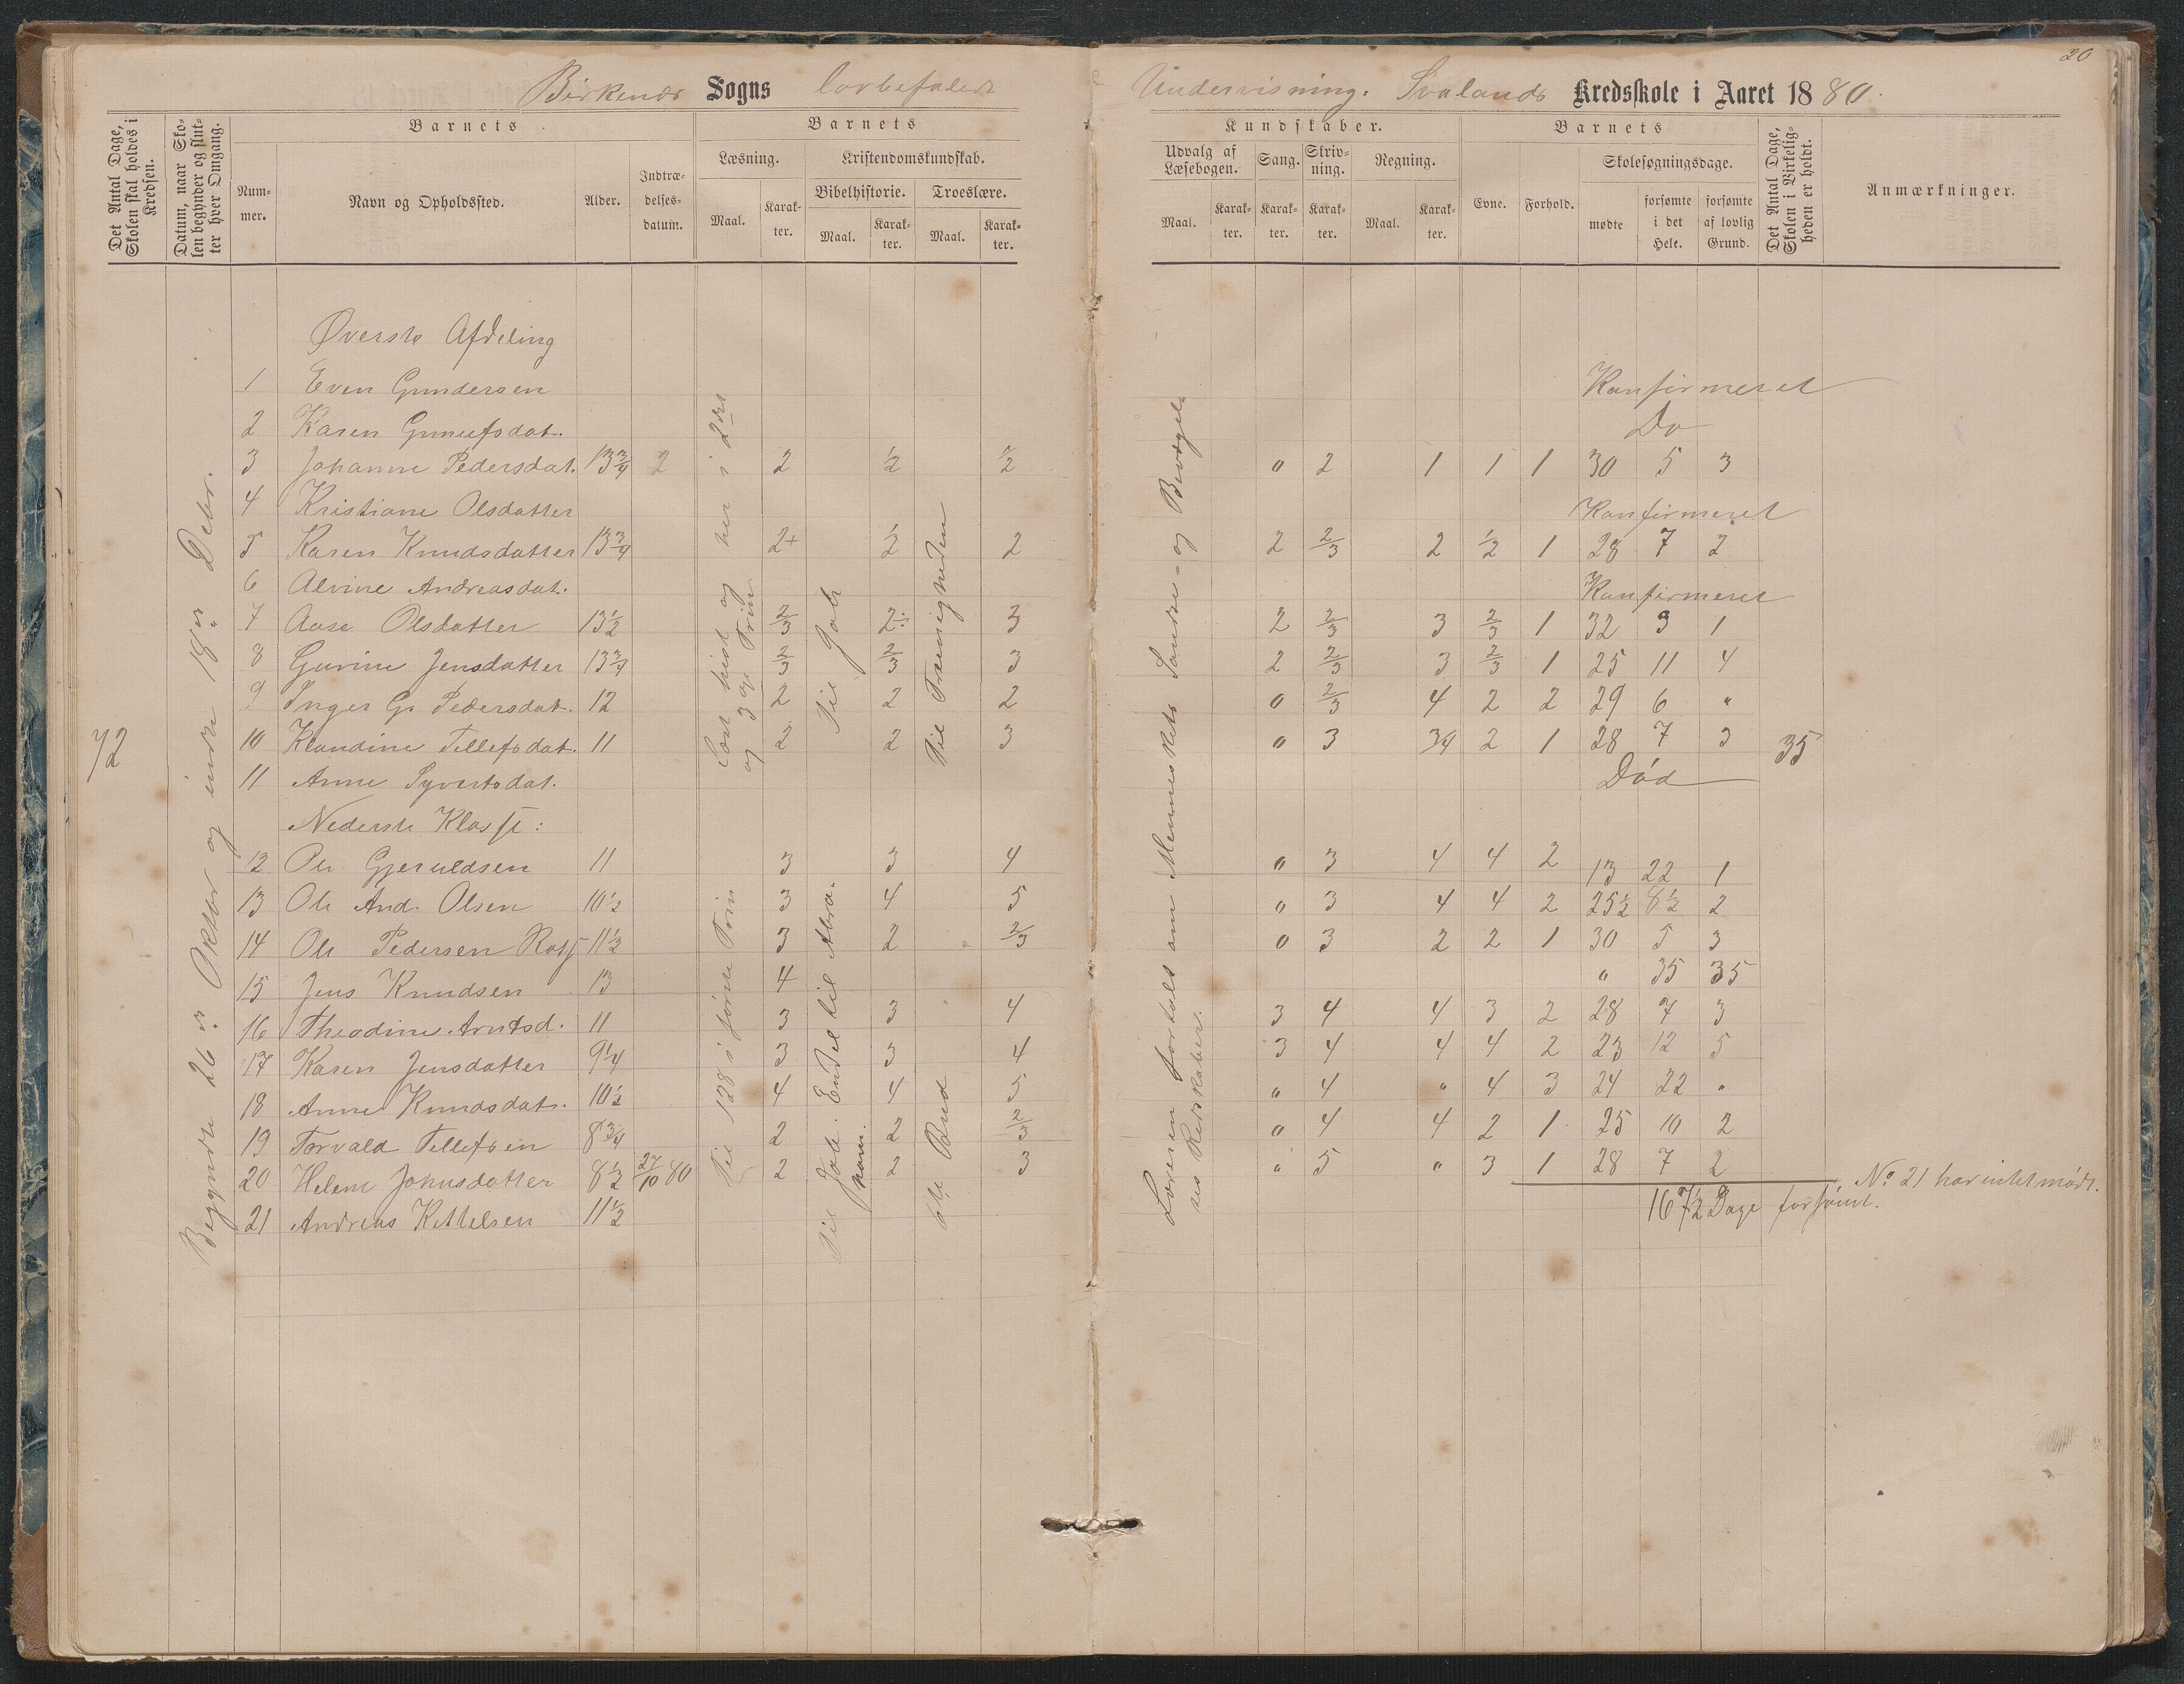 20
Birkenæs Sogns lovbefalede Undervisning. Svalands Kredsskole i Aaret 1880.
Det Antal Dage, Skolen skal holdes i Kredsen.
Datum, naar Skolen begynder og slutter hver Omgang.
Barnets
Nummer.
Navn og Opholdssted.
Alder.
Indtrædelsesdatum.
Barnets
Læsning.
Maal.
Karakter.
Kristendomskundskab.
Bibelhistorie.
Maal.
Karakter.
Troeslære.
Maal.
Karakter.
Kundskaber.
Udvalg af Læsebogen.
Maal.
Karakter.
Sang.
Karakter.
Skrivning.
Karakter.
Regning.
Maal.
Karakter.
Barnets
Evne.
Forhold.
Skolesøgningsdage.
mødte
forsømte i det Hele.
forsømte af lovlig Grund.
Det Antal Dage, Skolen i Virkeligheden er holdt.
Anmærkninger.
72
Begyndte 26de Oktbr og endte 18de Debr.
Øverste Afdeling
1 Even Gundersen Konfirmeret
2 Karen Gunulfsdat. Do
3 Johanne Pedersdat. 13 3/4 2 2 1/2 1/2 " 2 1 1 1 30 5 3
4 Kristiane Olsdatter Konfirmeret
5 Karen Knudsdatter 13 3/4 2+ 1/2 2 2 2/3 2 1/2 1 28 7 2
6 Alvine Andreasdat. Konfirmeret
7 Aase Olsdatter 13 1/2 2/3 2÷ 3 2 2/3 3 2/3 1 32 3 1
8 Gurine Jensdatter 13 3/4 2/3 2/3 3 2 2/3 3 2/3 1 25 11 4
9 Inger G. Pedersdat. 12 2 2 2 0 2/3 4 2 2 29 6 "
10 Klaudine Tellefsdat. 11 2 2 3 0 3 3/4 2 1 28 7 3 35
11 Anne Syvertsdat. Død
Nederste Klasse:
12 Ole Gjeruldsen 11 3 3 4 0 3 4 4 2 13 22 1
13 Ole And. Olsen 10 1/2 3 4 5 0 3 4 4 2 25 1/2 8 1/2 2
14 Ole Pedersen 11 1/2 3 2 2/3 0 3 2 2 1 30 5 3
15 Jens Knudsen 13 4 " 35 35
16 Theodine Arntsd. 11 3 3 4 3 4 4 3 2 28 7 3
17 Karen Jensdatter 9 1/4 3 3 4 3 4 4 4 2 23 12 5
18 Anne Knudsdat. 10 1/2 4 4 5 " 4 " 4 3 24 22 "
19 Torvald Tellefsen 8 3/4 2 2 2/3 0 4 4 2 1 25 10 2
20 Helene Johnsdatter 8 1/2 27/10 80 2 2 3 " 5 " 3 1 28 7 2
21 Andreas Kittelsen 11 1/2
No 21 har intet mødt.
167 1/2 Dage forsømt.
Læst hist og her i 2det
og 3die Trin
Til 128 i første Trin
Til Job
Til Job. Endel til Abraham.
Til Treenigheden
6te Bud
Læreren fortalt om Menneskets Sandse- og Bevægelses Redskaber.